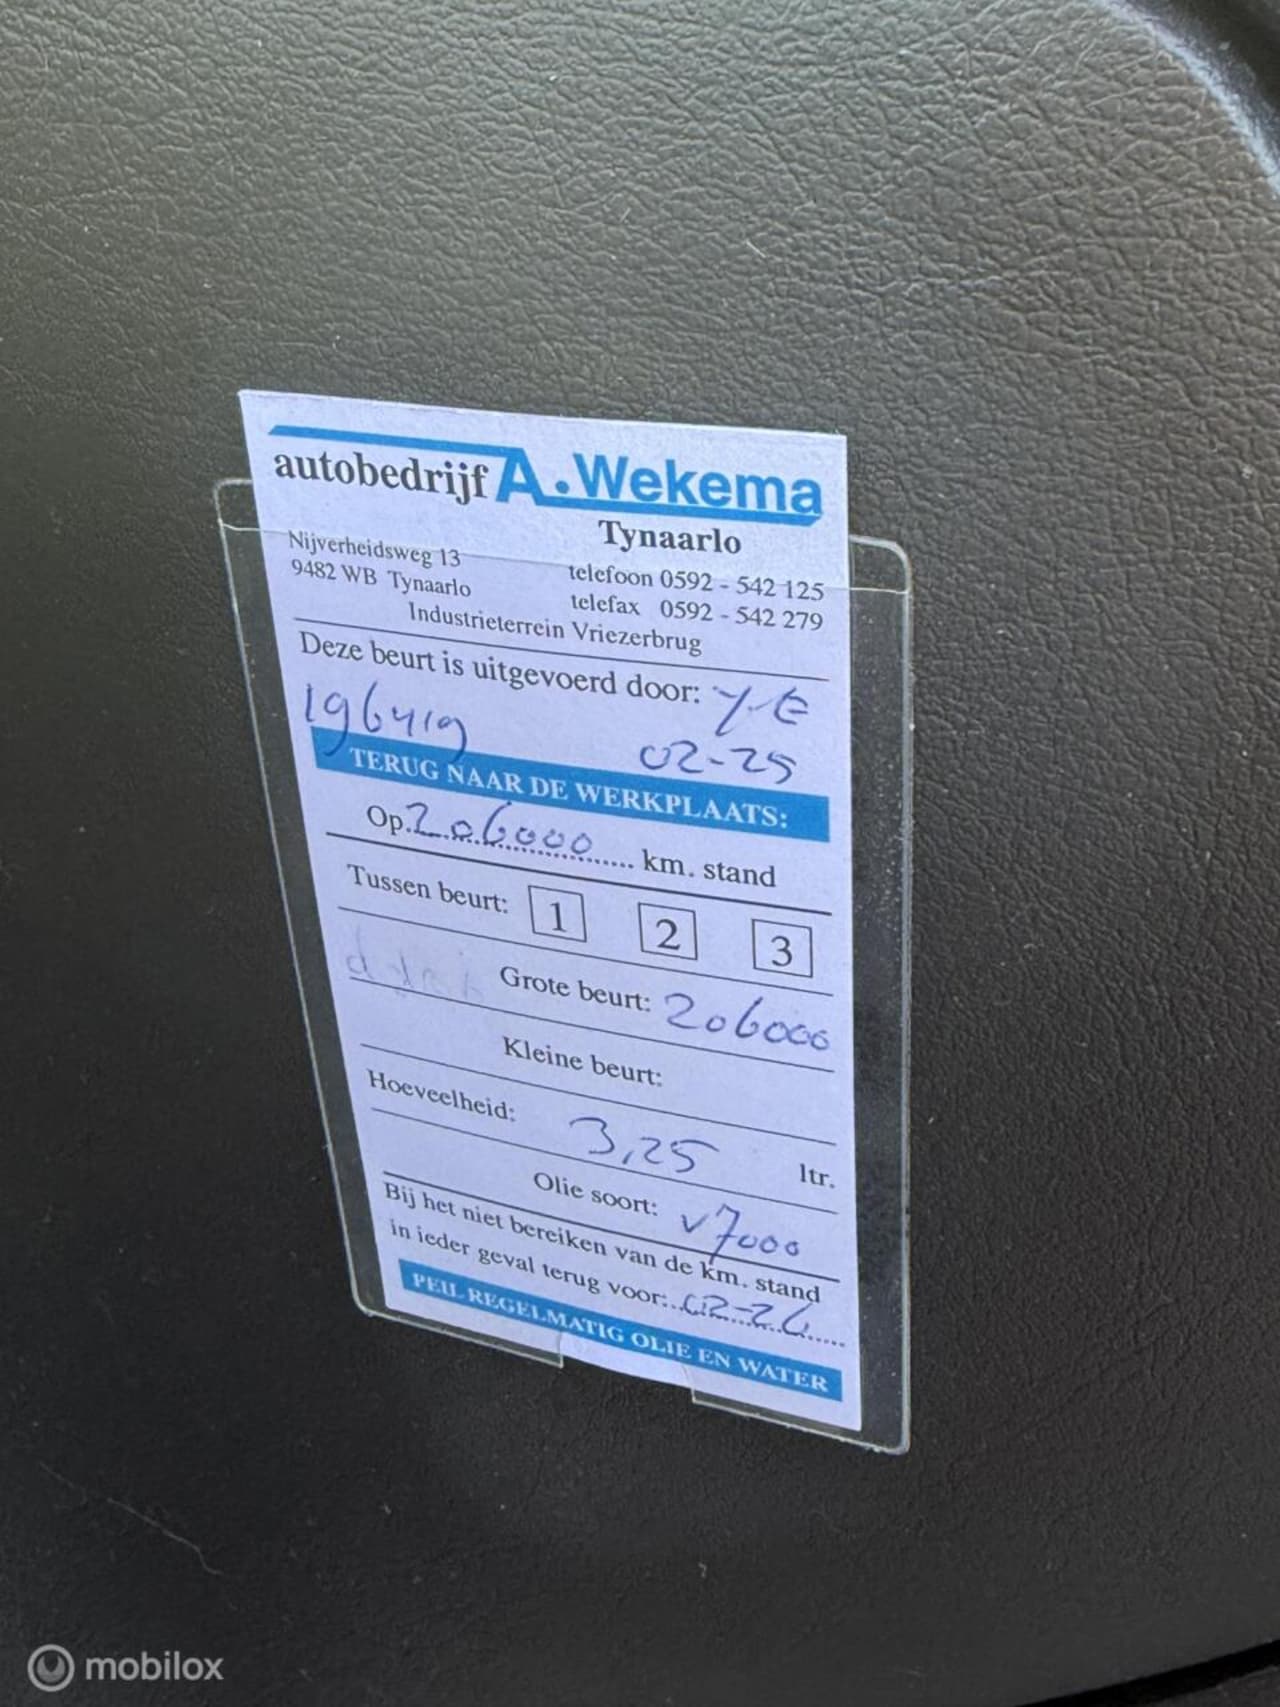 autobedrijf A.Wekema
Tynaarlo
Nijverheidsweg 13
9482 WB Tynaarlo
telefoon 0592 - 542 125
telefax 0592 - 542 279
Industrieterrein Vriezerbrug
Deze beurt is uitgevoerd door: Y-E
196419 02-25
TERUG NAAR DE WERKPLAATS:
Op 206000 km. stand
Tussen beurt: 1 2 3
Grote beurt: 206000
Kleine beurt:
Hoeveelheid: 3,25 ltr.
Olie soort: v7000
Bij het niet bereiken van de km. stand
in ieder geval terug voor: 02-26
PEIL REGELMATIG OLIE EN WATER
mobilox